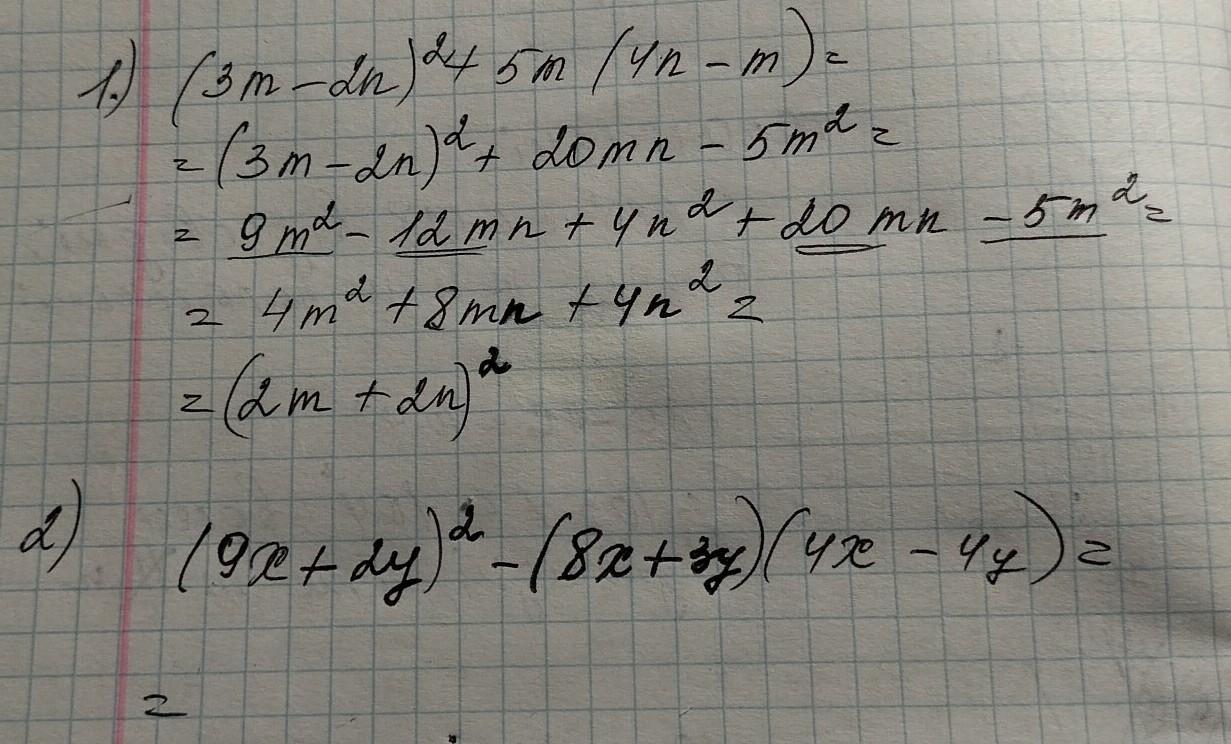 1.) (3m-2n)²+ 5m (4n-m)=
= (3m-2n)²+ 20mn - 5m² =
= 9m² - 12mn + 4n² + 20mn - 5m² =
= 4m² + 8mn + 4n² =
= (2m + 2n)²
2) (9x + 2y)² - (8x+3y)(4x - 4y) =
=